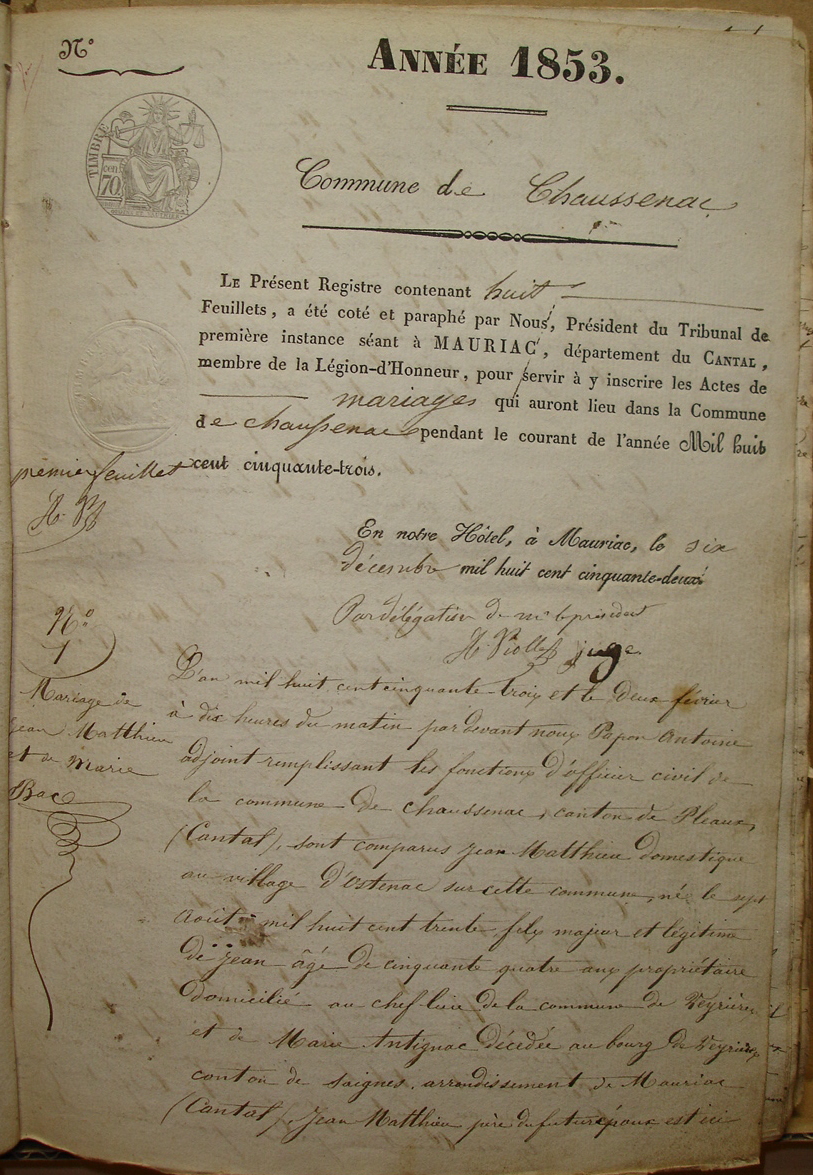 N°
ANNÉE 1853.
TIMBRE
cen
70
Commune de Chaussenac
LE Présent Registre contenant huit
Feuillets, a été coté et paraphé par Nous, Président du Tribunal de
première instance séant à MAURIAC, département du CANTAL,
membre de la Légion-d'Honneur, pour servir à y inscrire les Actes de
mariages qui auront lieu dans la Commune
de chaussenac pendant le courant de l'année Mil huit
cent cinquante-trois.
premier feuillet
En notre Hôtel, à Mauriac, le six
décembre mil huit cent cinquante-deux
Par délégation de mr le président
juge
N°
1
Mariage de
jean Matthieu
et de Marie
Bac
L'an mil huit cent cinquante trois et le deux février
à dix heures du matin par devant nous Papon Antoine
adjoint remplissant les fonctions d'officier civil de
la commune de chaussenac, canton de Pleaux,
(Cantal), sont comparus jean Matthieu domestique
au village d'Ostenac sur cette commune, né le sept
août mil huit cent trente fils majeur et légitime
de jean âgé de cinquante quatre ans propriétaire
domicilié au chef-lieu de la commune de Veyrières
et de Marie Antignac décédée au bourg de Veyrières
canton de saignes, arrondissement de Mauriac
(Cantal), Jean Matthieu père du futur époux est ici